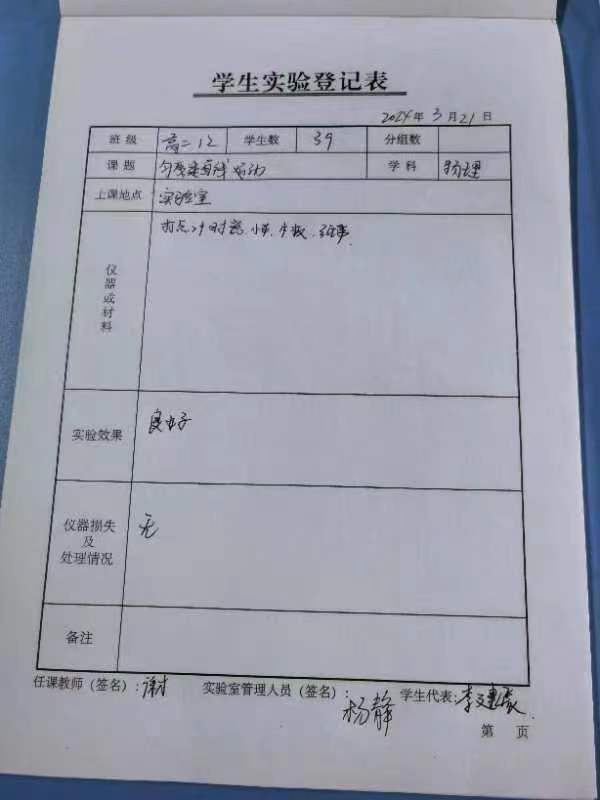 学生实验登记表
2024年3月21日
班级 高二12 学生数 39 分组数
课题 匀变速直线运动 学科 物理
上课地点 实验室
仪器或材料 打点计时器、小车、
实验效果 良好
仪器损失及处理情况 无
备注
任课教师（签名）：谢 实验室管理人员（签名）：杨静 学生代表：李
第 页